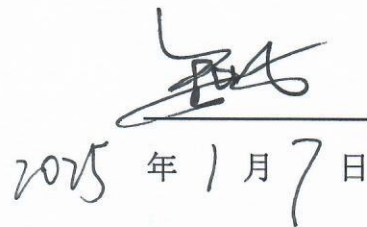 2025 年 1 月 7 日